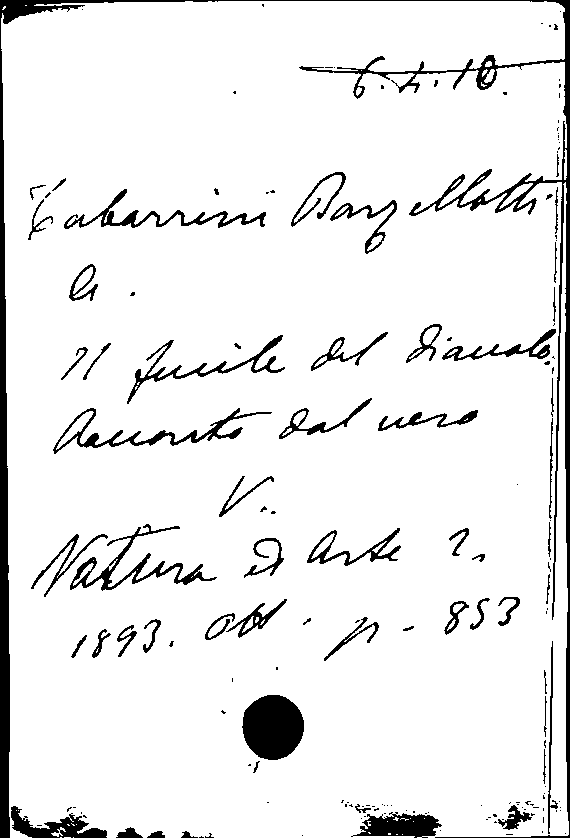 6.4.10.
Tabarrini Barzellotti
A.
Il fucile del diavolo.
Racconto dal vero
V.
Natura ed Arte 2.
1893. Ott. p. 853